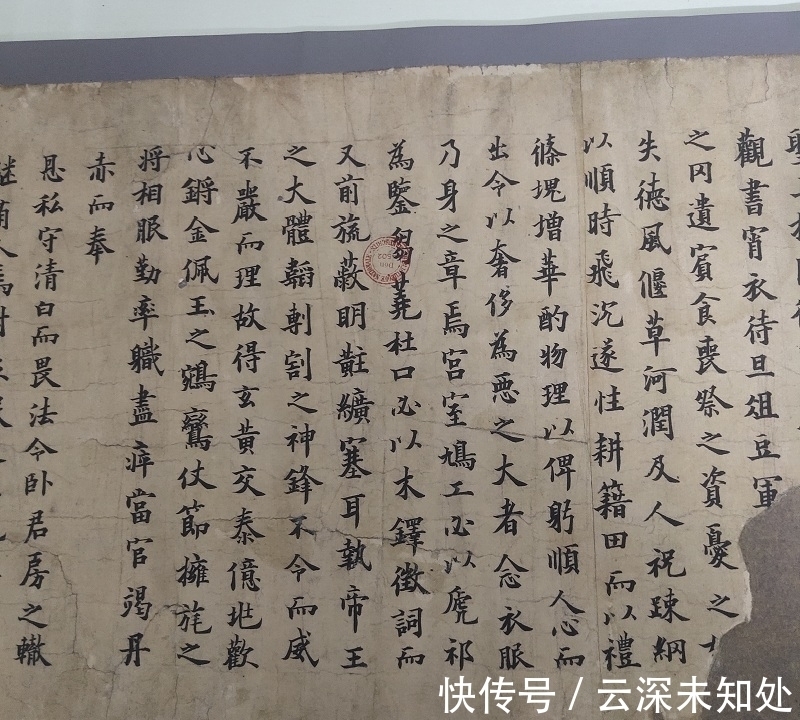 聖
觀書宵衣待旦俎豆軍
之罔遺賓食喪祭之資憂之
失德風偃草河潤及人祝踈網
以順時飛沉遂性耕籍田而以禮
塊增華酌物理以俾躬順人心而
出令以奢侈為惡之大者念衣服
乃身之章焉宮室鳩工必以虒祁
為鑒芻蕘杜口必以木鐸徵詞而
又前旒蔽明黈纊塞耳執帝王
之大體韜剸割之神鋒不令而威
不嚴而理故得玄黃交泰億兆歡
心鏘金佩玉之鵷鸞仗節擁旄之
將相服勤率職盡瘁當官竭丹
赤而奉
恩私守清白而畏法令卧君房之轍
快传号 / 云深未知处